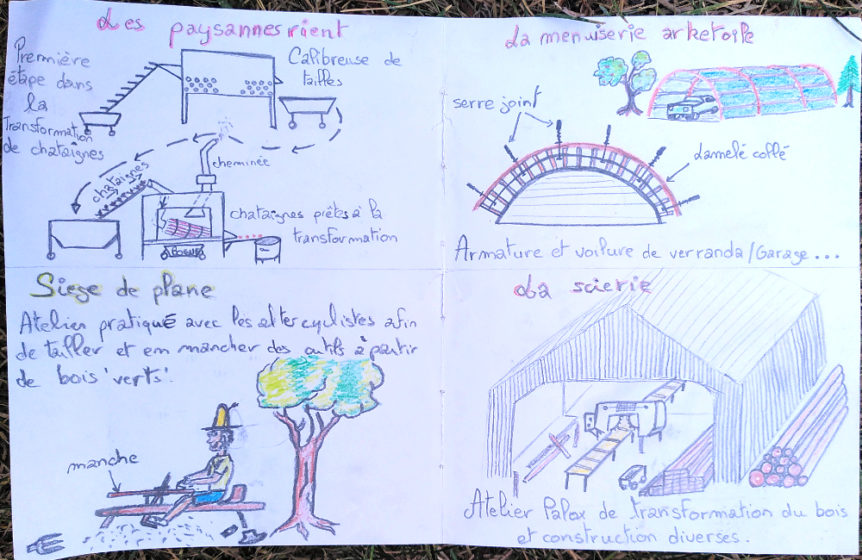 Les paysannes rient
Première
étape dans
la
Transformation
de chataignes
Calibreuse de
tailles
cheminée
chataignes
chataignes prêtes à la
transformation
La menuiserie arketoile
serre joint
lamelé collé
Armature et voilure de verranda/Garage...
Siège de plane
Atelier pratiqué avec les altercyclistes afin
de tailler et em mancher des outils à partir
de bois 'verts'.
manche
La scierie
Atelier Palox de transformation du bois
et construction diverses.